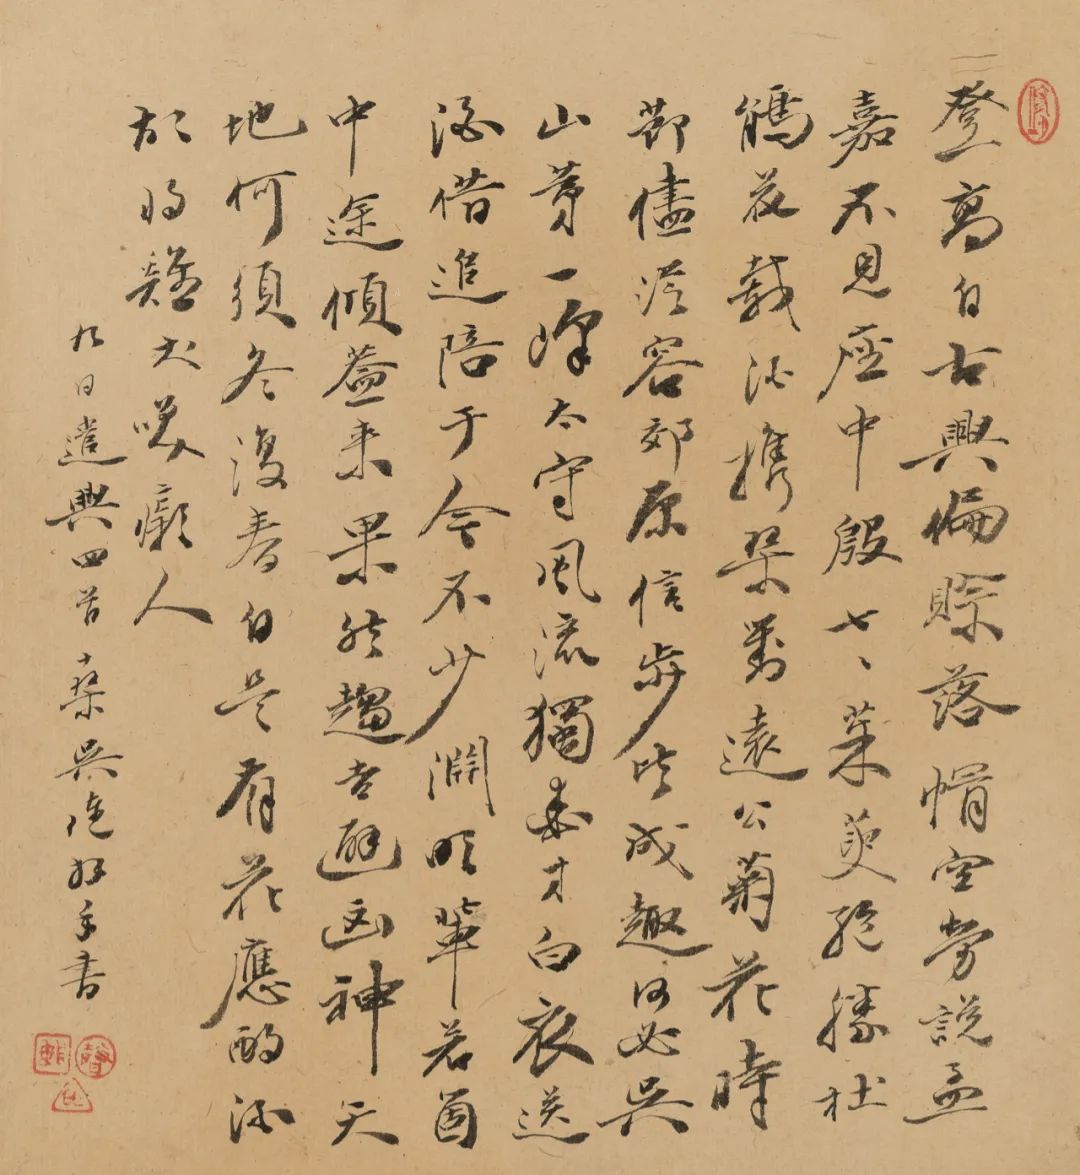 登高自古興偏賒落帽空勞說孟
嘉不見座中殷七、茱萸絕勝杜
鵑花載酒攜琴對遠公菊花時
節儘從容郊原信步皆成趣何必吳
山第一峰太守風流獨愛才白衣送
酒借追陪于今不少淵明輩若
中途傾蓋來果然趨吉避凶神天
地何須冬復春自是有花應酌酒
將雞犬笑癡人
九日遣興四首 吳從好手書